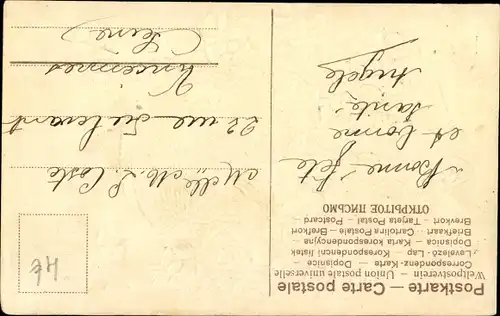 Postkarte — Carte postale
Weltpostverein — Union postale universelle
Correspondenz-Karte — Dopisnice
Levelező-Lap — Korrespondenční lístek
Dopisnica — Karta korespondencyjna
Briefkaart — Cartolina Postale — Brefkort
Brevkort — Tarjeta Postal — Postcard
ОТКРЫТОЕ ПИСЬМО
Bonne fête
et bonne
santé
Angèle
Melle M. L. Coste
22 rue du Levant
Vincennes
(Seine)